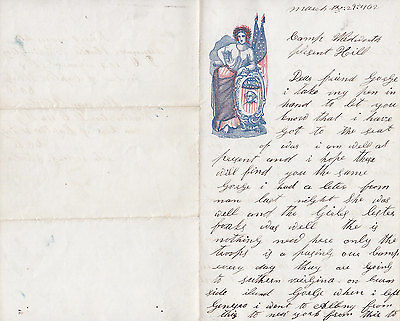 Camp
present Hill
Dear friend George
i take my pen in
hand to let you
know that i have
got to the seat
of war i am well at
present and i hope these
will find you the same
George i had a leter from
mam last night She was
well and the Girls lester
foats was well the is
nothing need here only the
troops is a pasing our camp
every day they are going
to suthern virgina on burn
side iland George when i left
Genesea i went to Albany from
this to new york from this to